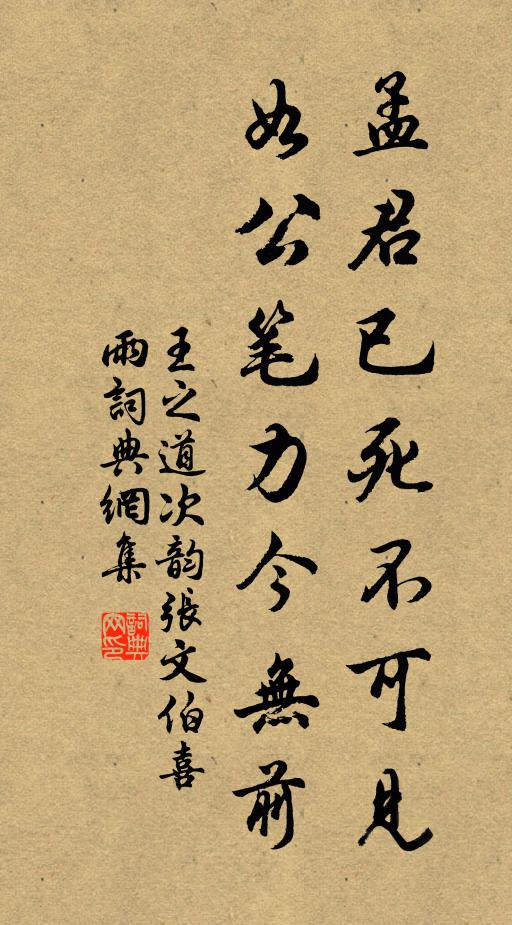 孟君已死不可見
如公笔力今無前
王之道次韵張文伯喜
雨詞典網集
詞典網印